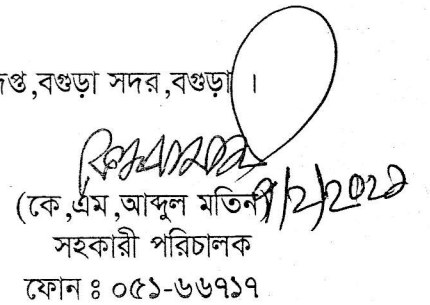 ,বগুড়া সদর,বগুড়া ।
(কে,এম,আব্দুল মতিন)
সহকারী পরিচালক
ফোন ঃ ০৫১-৬৬৭১৭